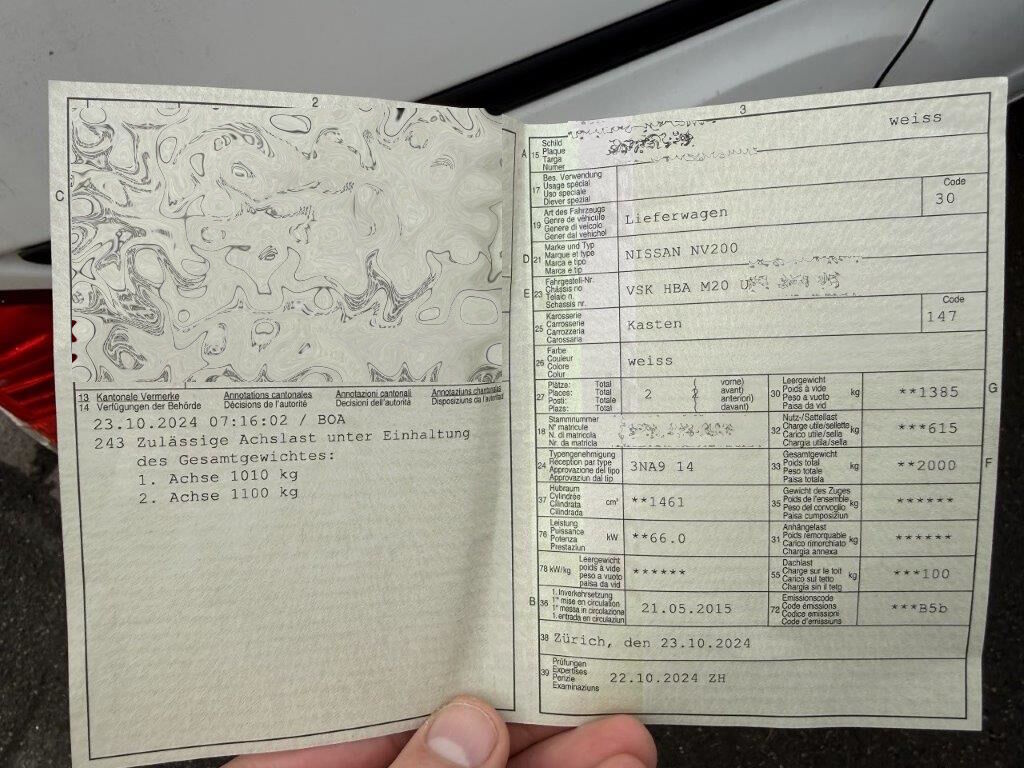 2
C
13 Kantonale Vermerke Annotations cantonales Annotazioni cantonali Annotaziuns chantunalas
14 Verfügungen der Behörde Décisions de l'autorité Decisioni dell'autorità Disposiziuns da l'autoritad
23.10.2024 07:16:02 / BOA
243 Zulässige Achslast unter Einhaltung
des Gesamtgewichtes:
1. Achse 1010 kg
2. Achse 1100 kg
3
A 15 Schild
Plaque
Targa
Numer
weiss
17 Bes. Verwendung
Usage spécial
Uso speciale
Diever spezial
19 Art des Fahrzeugs
Genre de véhicule
Genere di veicolo
Gener dal vehichel
Lieferwagen
Code
30
D 21 Marke und Typ
Marque et type
Marca e tipo
Marca e tip
NISSAN NV200
E 23 Fahrgestell-Nr.
Châssis no
Telaio n.
Schassis nr.
VSK HBA M20 U
25 Karosserie
Carrosserie
Carrozzeria
Carossaria
Kasten
Code
147
26 Farbe
Couleur
Colore
Colur
weiss
27 Plätze: Total
Places: Total
Posti: Totale
Plazs: Total
2 ( vorne)
2 avant)
anteriori)
davant)
30 Leergewicht
Poids à vide
Peso a vuoto
Paisa da vid
kg
**1385
G
18 Stammnummer
N° matricule
N. di matricola
Nr. da matricla
32 Nutz-/Sattellast
Charge utile/sellette
Carico utile/sella
Chargia utila/sella
kg
***615
24 Typengenehmigung
Réception par type
Approvazione del tipo
Approvaziun dal tip
3NA9 14
33 Gesamtgewicht
Poids total
Peso totale
Paisa totala
kg
**2000
F
37 Hubraum
Cylindrée
Cilindrata
Cilindrada
cm³
**1461
35 Gewicht des Zuges
Poids de l'ensemble
Peso del convoglio
Paisa cumposiziun
kg
******
76 Leistung
Puissance
Potenza
Prestaziun
kW
**66.0
31 Anhängelast
Poids remorquable
Carico rimorchiato
Chargia annexa
kg
******
78 kW/kg Leergewicht
poids à vide
peso a vuoto
paisa da vid
******
55 Dachlast
Charge sur le toit
Carico sul tetto
Chargia sin il tetg
kg
***100
B 36 1. Inverkehrsetzung
1re mise en circulation
1a messa in circolazione
1. entrada en circulaziun
21.05.2015
72 Emissionscode
Code émissions
Codice emissioni
Code d'emissiuns
***B5b
38 Zürich, den 23.10.2024
39 Prüfungen
Expertises
Perizie
Examinaziuns
22.10.2024 ZH